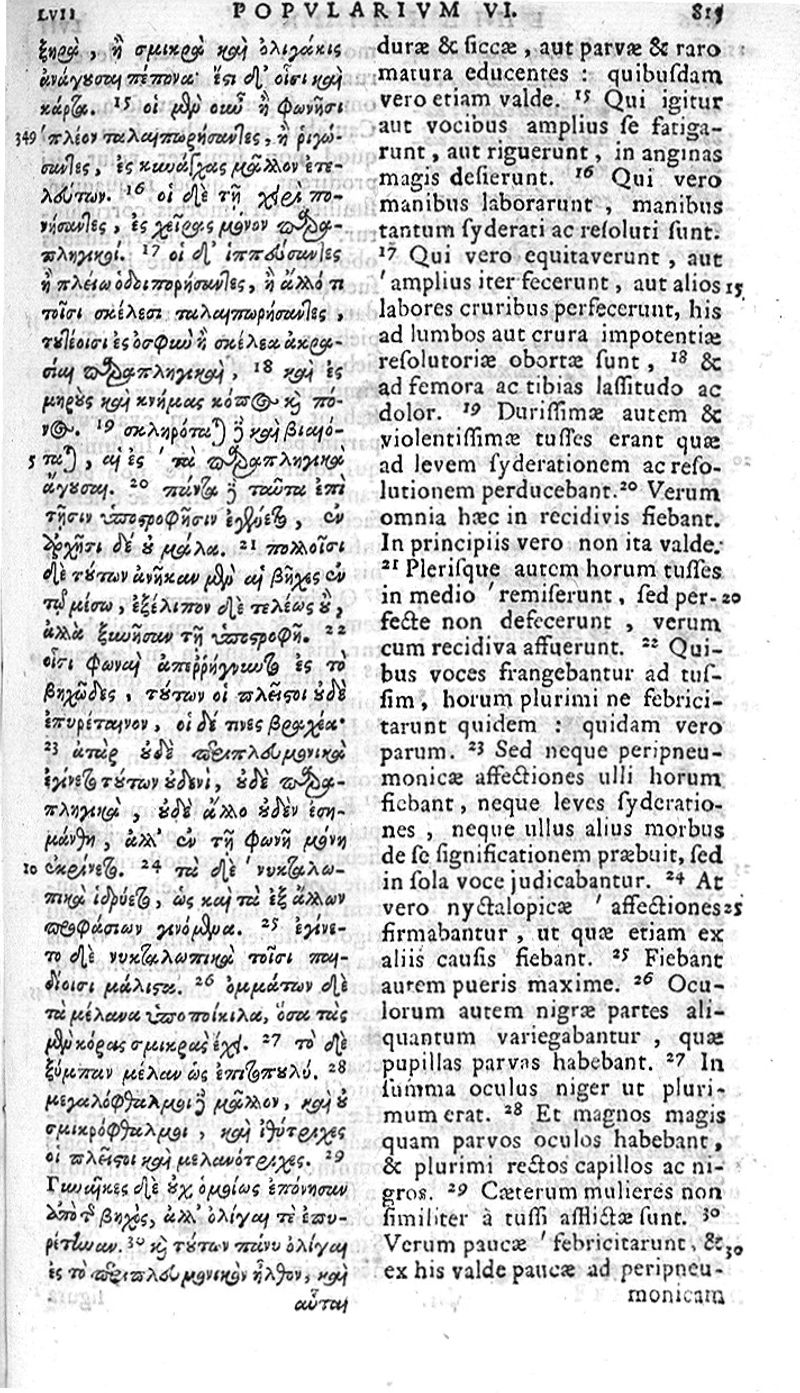 LVII POPVLARIVM VI. 815
ξηραὶ, ἢ σμικρὰ καὶ ὀλιγάκις
ἀνάγουσαι πέπονα· ἔστι δ' οἷσι καὶ
κάρτα. 15 οἱ μὲν οὖν ἢ φωνῇσι
349 'πλέον ταλαιπωρήσαντες, ἢ ῥιγώ-
σαντες, ἐς κυνάγχας μᾶλλον ἐτε-
λεύτων. 16 οἱ δὲ τῇ χειρὶ πο-
νήσαντες, ἐς χεῖρας μόνον παρα-
πληγικοί. 17 οἱ δ' ἱππεύσαντες
ἢ πλείω ὁδοιπορήσαντες, ἢ ἄλλό τι
τοῖσι σκέλεσι ταλαιπωρήσαντες,
τουτέοισι ἐς ὀσφὺν ἢ σκέλεα ἀκρα-
σίαι παραπληγικαὶ, 18 καὶ ἐς
μηροὺς καὶ κνήμας κόπος καὶ πό-
νος. 19 σκληρόταται δὲ καὶ βιαιό-
5 ταται, αἱ ἐς 'τὰ παραπληγικὰ
ἄγουσαι. 20 πάντα δὲ ταῦτα ἐπὶ
τῇσιν ὑποστροφῇσιν ἐγένετο, ἐν
ἀρχῇσι δὲ οὐ μάλα. 21 πολλοῖσι
δὲ τούτων ἀνῆκαν μὲν αἱ βῆχες ἐν
τῷ μέσῳ, ἐξέλιπον δὲ τελέως οὒ,
ἀλλὰ ξυνῆσαν τῇ ὑποστροφῇ. 22
οἷσι φωναὶ ἀπεῤῥήγνυντο ἐς τὸ
βηχῶδες, τούτων οἱ πλεῖστοι οὐδὲ
ἐπυρέταινον, οἱ δέ τινες βραχέα·
23 ἀτὰρ οὐδὲ περιπλευμονικὰ
ἐγίνετο τούτων οὐδενὶ, οὐδὲ παρα-
πληγικὰ, οὐδὲ ἄλλο οὐδὲν ἐση-
μάνθη, ἀλλ' ἐν τῇ φωνῇ μόνῃ
10 ἐκρίνετο. 24 τὰ δὲ 'νυκταλω-
πικὰ ἱδρύετο, ὡς καὶ τὰ ἐξ ἄλλων
προφάσιων γινόμενα. 25 ἐγίνε-
το δὲ νυκταλωπικὰ τοῖσι παι-
δίοισι μάλιστα. 26 ὀμμάτων δὲ
τὰ μέλανα ὑποποίκιλα, ὅσα τὰς
μὲν κόρας σμικρὰς ἔχει. 27 τὸ δὲ
ξύμπαν μέλαν ὡς ἐπιτοπουλύ. 28
μεγαλόφθαλμοι δὲ μᾶλλον, καὶ οὐ
σμικρόφθαλμοι, καὶ ἰθύτριχες
οἱ πλεῖστοι καὶ μελανότριχες. 29
Γυναῖκες δὲ οὐχ ὁμοίως ἐπόνησαν
ὑπὸ τοῦ βηχὸς, ἀλλ' ὀλίγαι τε ἐπυ-
ρέτηναν. 30 καὶ τούτων πάνυ ὀλίγαι
ἐς τὸ περιπλευμονικὸν ἦλθον, καὶ
αὗται
duræ & ſiccæ, aut parvæ & raro
matura educentes : quibuſdam
vero etiam valde. 15 Qui igitur
aut vocibus amplius ſe fatiga-
runt, aut riguerunt, in anginas
magis deſierunt. 16 Qui vero
manibus laborarunt, manibus
tantum ſyderati ac reſoluti ſunt.
17 Qui vero equitaverunt, aut
'amplius iter fecerunt, aut alios 15
labores cruribus perfecerunt, his
ad lumbos aut crura impotentiæ
reſolutoriæ obortæ ſunt, 18 &
ad femora ac tibias laſſitudo ac
dolor. 19 Duriſſimæ autem &
violentiſſimæ tuſſes erant quæ
ad levem ſyderationem ac reſo-
lutionem perducebant. 20 Verum
omnia hæc in recidivis fiebant.
In principiis vero non ita valde.
21 Pleriſque autem horum tuſſes
in medio 'remiſerunt, ſed per- 20
fecte non defecerunt, verum
cum recidiva affuerunt. 22 Qui-
bus voces frangebantur ad tuſ-
ſim, horum plurimi ne febrici-
tarunt quidem : quidam vero
parum. 23 Sed neque peripneu-
monicæ affectiones ulli horum
fiebant, neque leves ſyderatio-
nes, neque ullus alius morbus
de ſe ſignificationem præbuit, ſed
in ſola voce judicabantur. 24 At
vero nyctalopicæ 'affectiones 25
firmabantur, ut quæ etiam ex
aliis cauſis fiebant. 25 Fiebant
autem pueris maxime. 26 Ocu-
lorum autem nigræ partes ali-
quantum variegabantur, quæ
pupillas parvas habebant. 27 In
ſumma oculus niger ut pluri-
mum erat. 28 Et magnos magis
quam parvos oculos habebant,
& plurimi rectos capillos ac ni-
gros. 29 Cæterum mulieres non
ſimiliter à tuſſi afflictæ ſunt. 30
Verum paucæ 'febricitarunt, & 30
ex his valde paucæ ad peripneu-
monicam